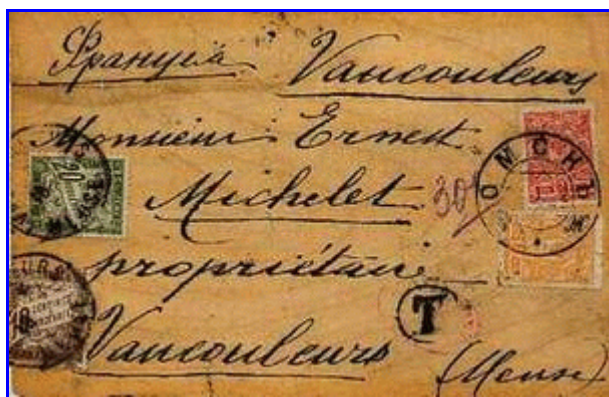 Франція Vaucouleurs
Monsieur Ernest
Michelet
30
propriétaire
Vaucouleurs
(Meuse)
ОМСКЪ
T
20
10